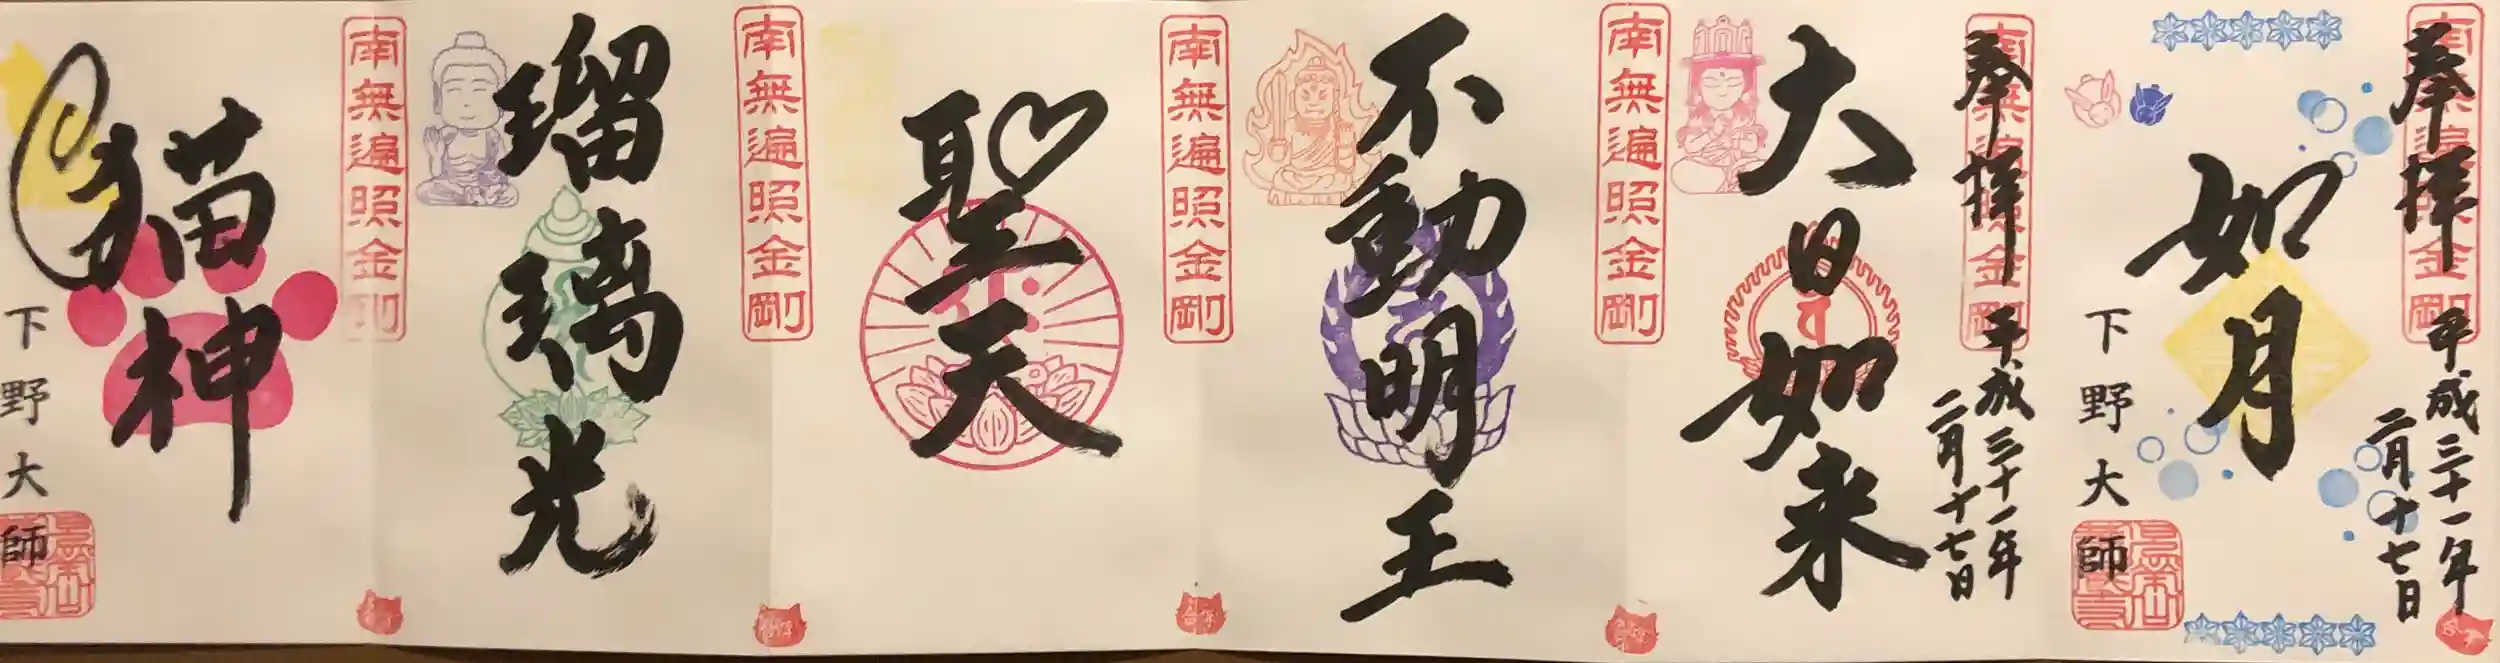 奉拝
平成三十一年
二月十七日
南無遍照金剛
如月
下野大師
奉拝
平成三十一年
二月十七日
南無遍照金剛
大日如来
南無遍照金剛
不動明王
南無遍照金剛
聖天
南無遍照金剛
瑠璃光
南無遍照金剛
猫神
下野大師